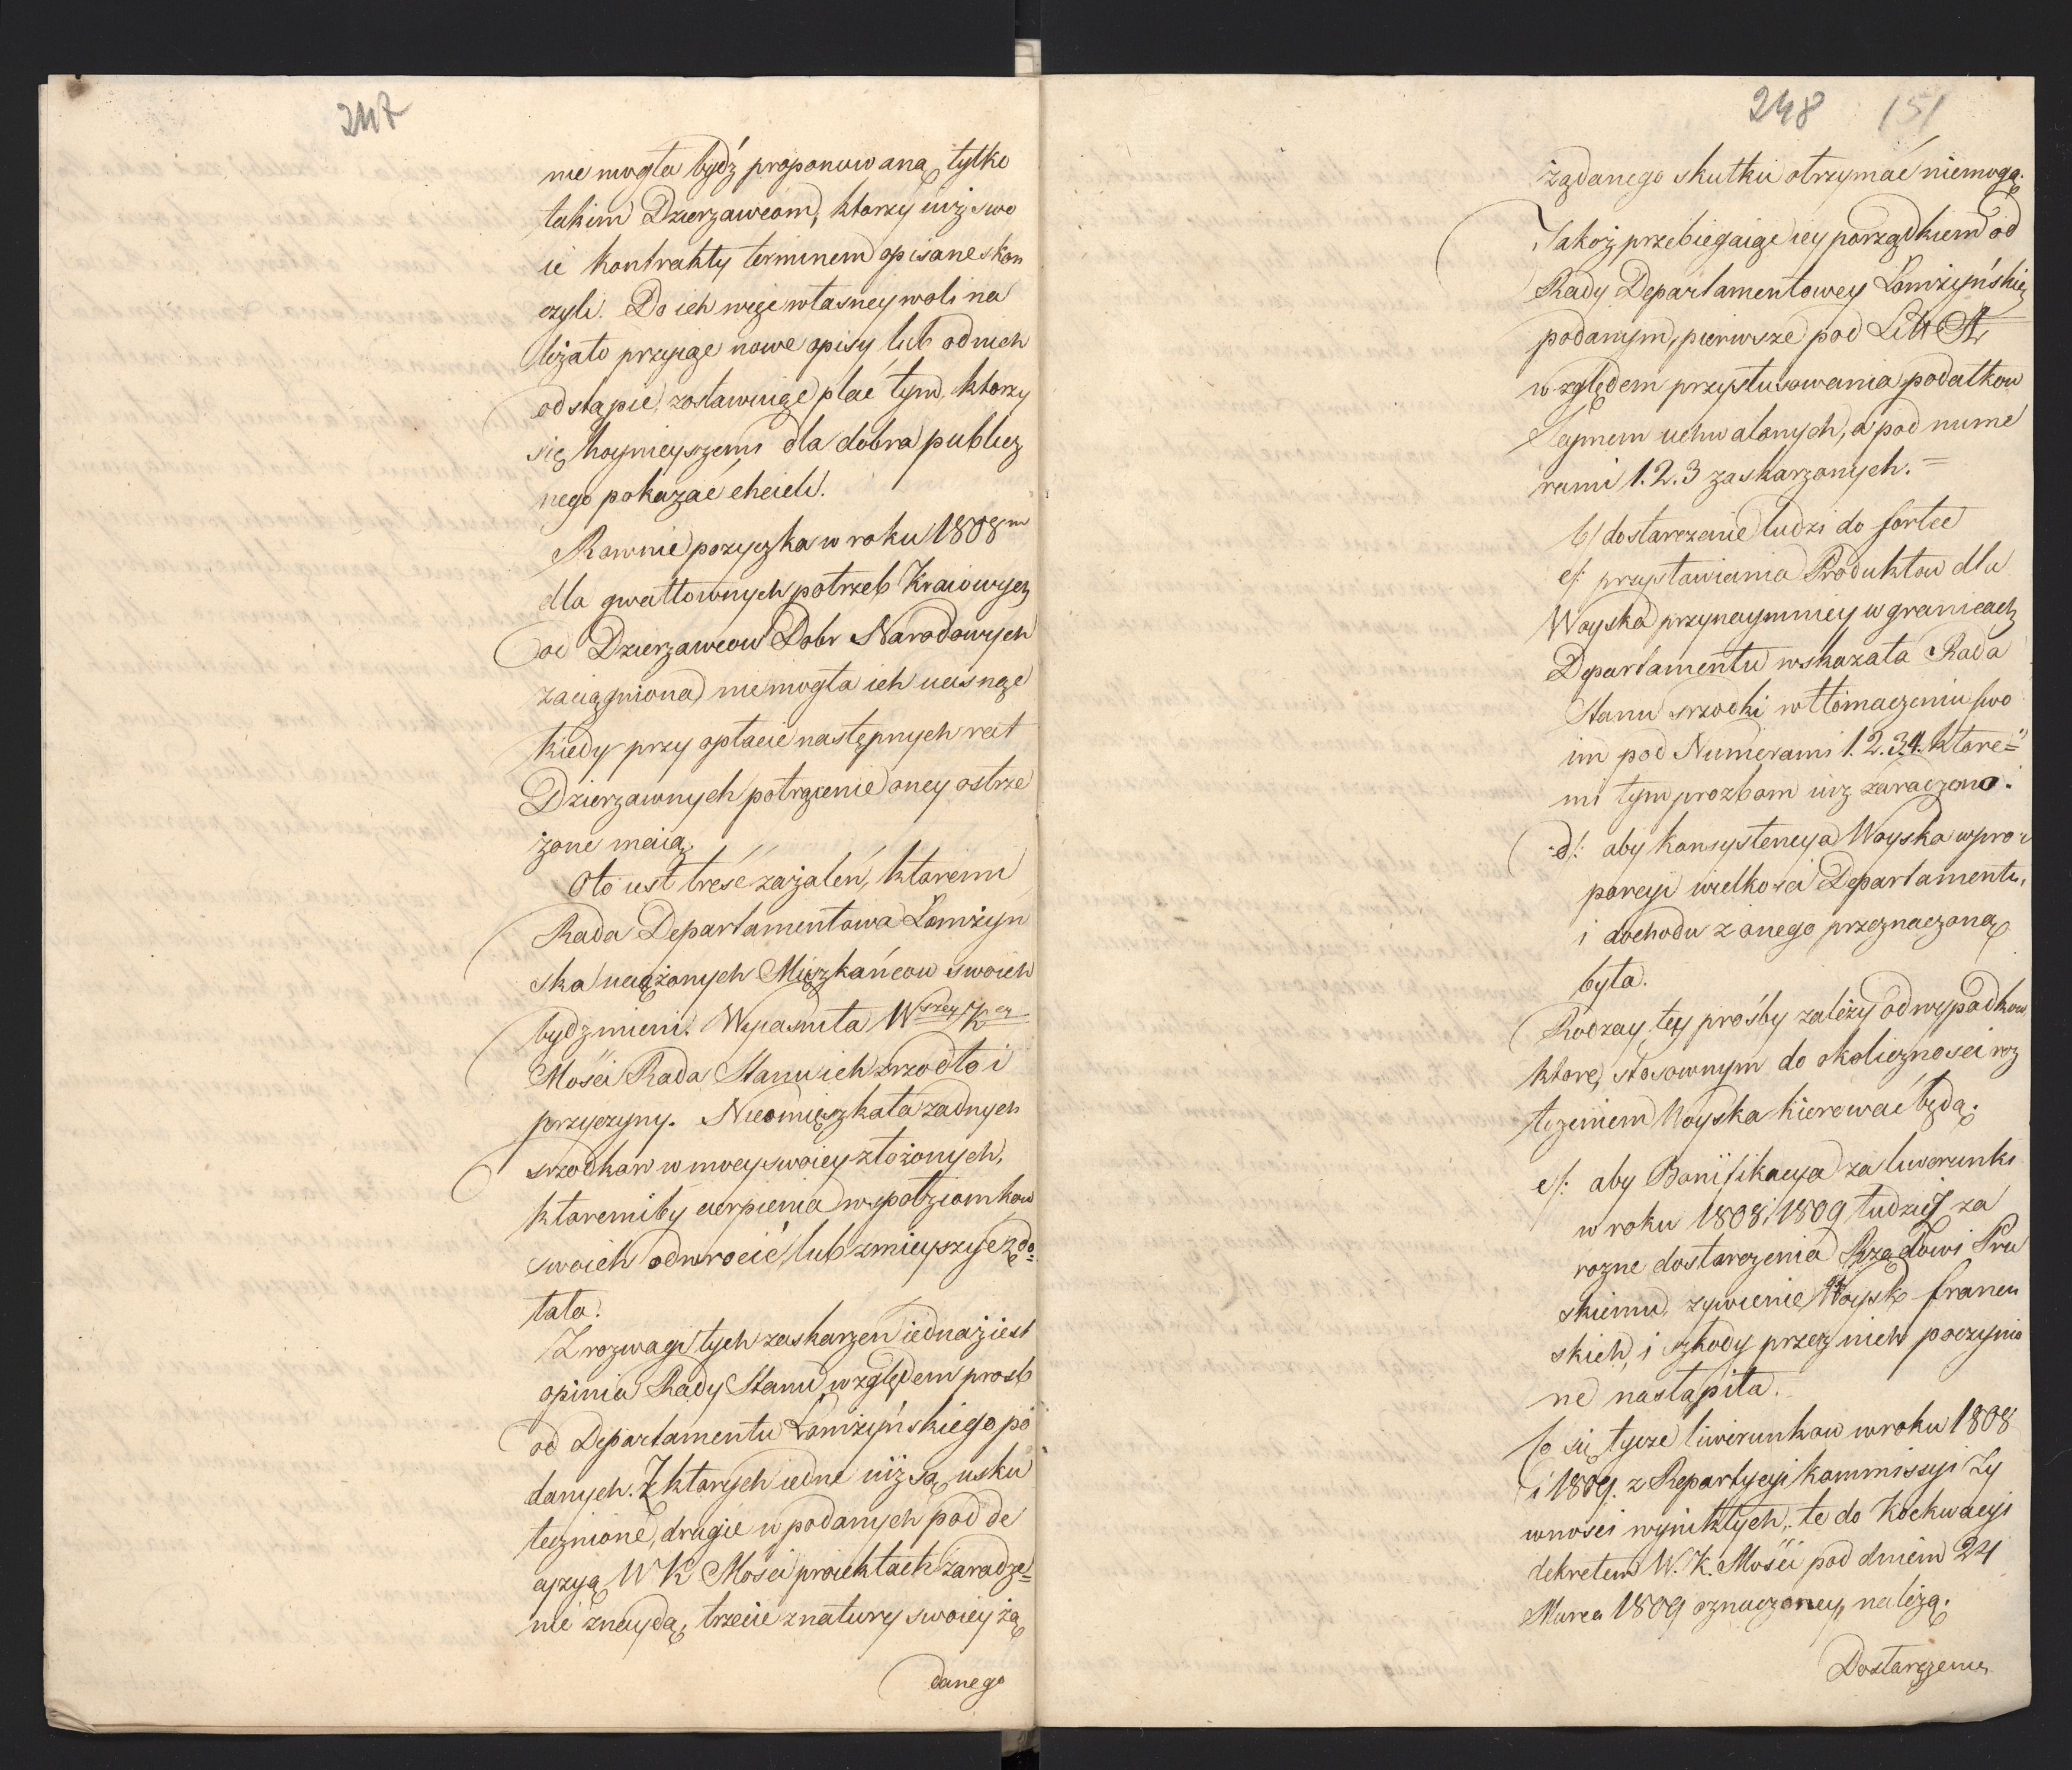 247
nie mogła bydź proponowaną tylko
takim Dzierzawcom, ktorzy iuż swo
ie kontrakty terminem opisane skon
czyli. Do ich więc własney woli na
leżało przyiąc nowe opisy lub od nich
odstąpic, zostawuiąc plac tym, ktorzy
się hoynieyszemi dla dobra publicz
nego pokazać chcieli.
Rownie pozyczka w roku 1808m
dla gwałtownych potrzeb Kraiowych
od Dzierzawcow Dobr Narodowych
zaciągniona, nie mogła ich ucisnąc
kiedy przy opłacie następnych rat
Dzierzawnych potrącenie oney ostrze
żone maią.
Oto iest treść zażaleń, ktoremi
Rada Departamentowa Łomżyn
ska uciążonych Mieszkańcow swoich
bydz mieni. Wyiasniła Wszey Key
Mości Rada Stanu ich zrzodło i
przyczyny. Nieomieszkała zadnych
srzodkow w mocy swoiey złożonych,
ktoremiby cierpienia wspołziomkow
swoich odwrocić lub zmieyszyć zdo=
łała.
Z rozwagi tych zaskarzen iednaż iest
opinia Rady Stanu względem prosb
od Departamentu Łomżyńskiego po
danych. Z ktorych iedne iuż są usku
tecznione, drugie w podanych pod de
cyzyą W K Mości proiektach zaradze=
nie znaydą, trzecie z natury swoiey żą
danego
248 151
żądanego skutku otrzymać niemogą.
Jakoż przebiegaiąc iey porządkiem od
Rady Departamentowey Łomżyńskiey
podanym, pierwsze pod Litt A,
względem przystusowania podatkow
Seymem uchwalonych, a pod nume
rami 1. 2. 3 zaskarzonych. =
b/ dostarczenie ludzi do fortec
c/: przystawienia Produktow dla
Woyska przynaymniey w granicach
Departamentu wskazała Rada
Stanu srzodki w tłomaczeniu swo
im pod Numerami 1. 2. 3. 4. ktore=
mi tym prozbom iuz zaradzono.
d/: aby konsystencya Woyska w pro=
porcyi wielkości Departamentu,
i dochodu z onego przeznaczoną
była.
Rodzay tey prośby zależy od wypadkow
ktore, stosownym do okoliczności roz
łożeniem Woyska kierować będą.
e/: aby Bonifikacya za liwerunki
w roku 1808 i 1809 tudzież za
rozne dostarczenia Rządowi Pru
skiemu, zywienie Woysk francu
skich, i szkody przez nich poczynio
ne nastąpiła.
Co się tycze liwerunkow w roku 1808
i 1809. z Repartycyi kommissyi Zy
wności wynikłych, te do Koekwacyi
dekretem W. K. Mości pod dniem 24
Marca 1809 oznaczoney, należą.
Dostarczenia